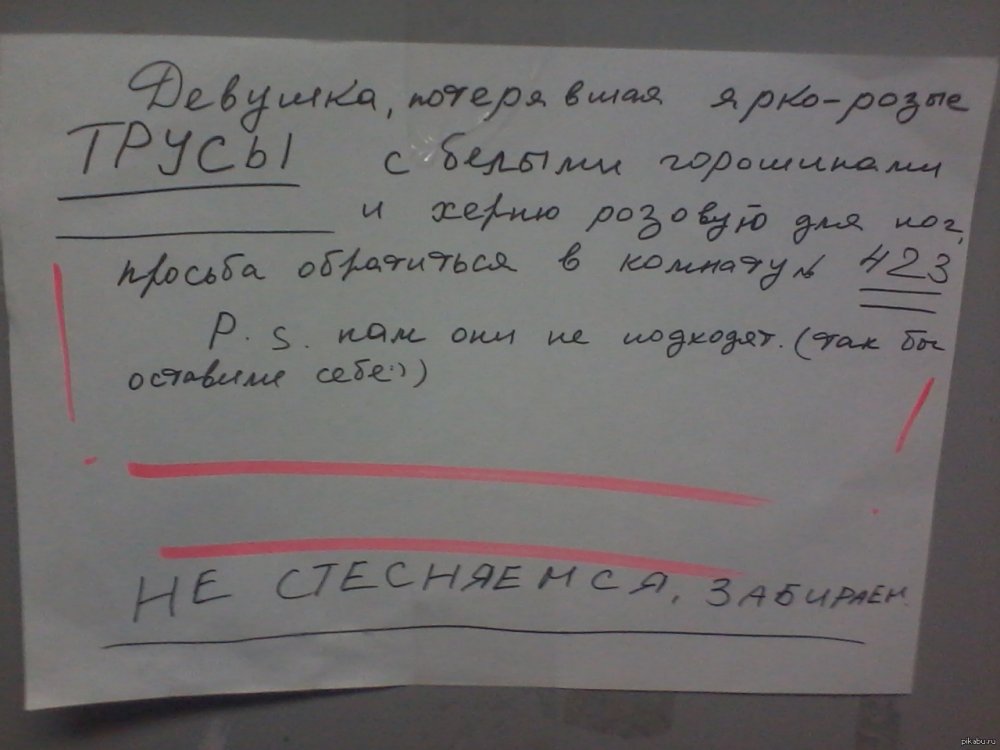 Девушка, потерявшая ярко-розые
ТРУСЫ с белыми горошинами
и херню розовую для ног,
просьба обратиться в комнату № 423
P.S. нам они не подходят. (так бы
оставили себе:))
НЕ СТЕСНЯЕМСЯ, ЗАБИРАЕМ
pikabu.ru